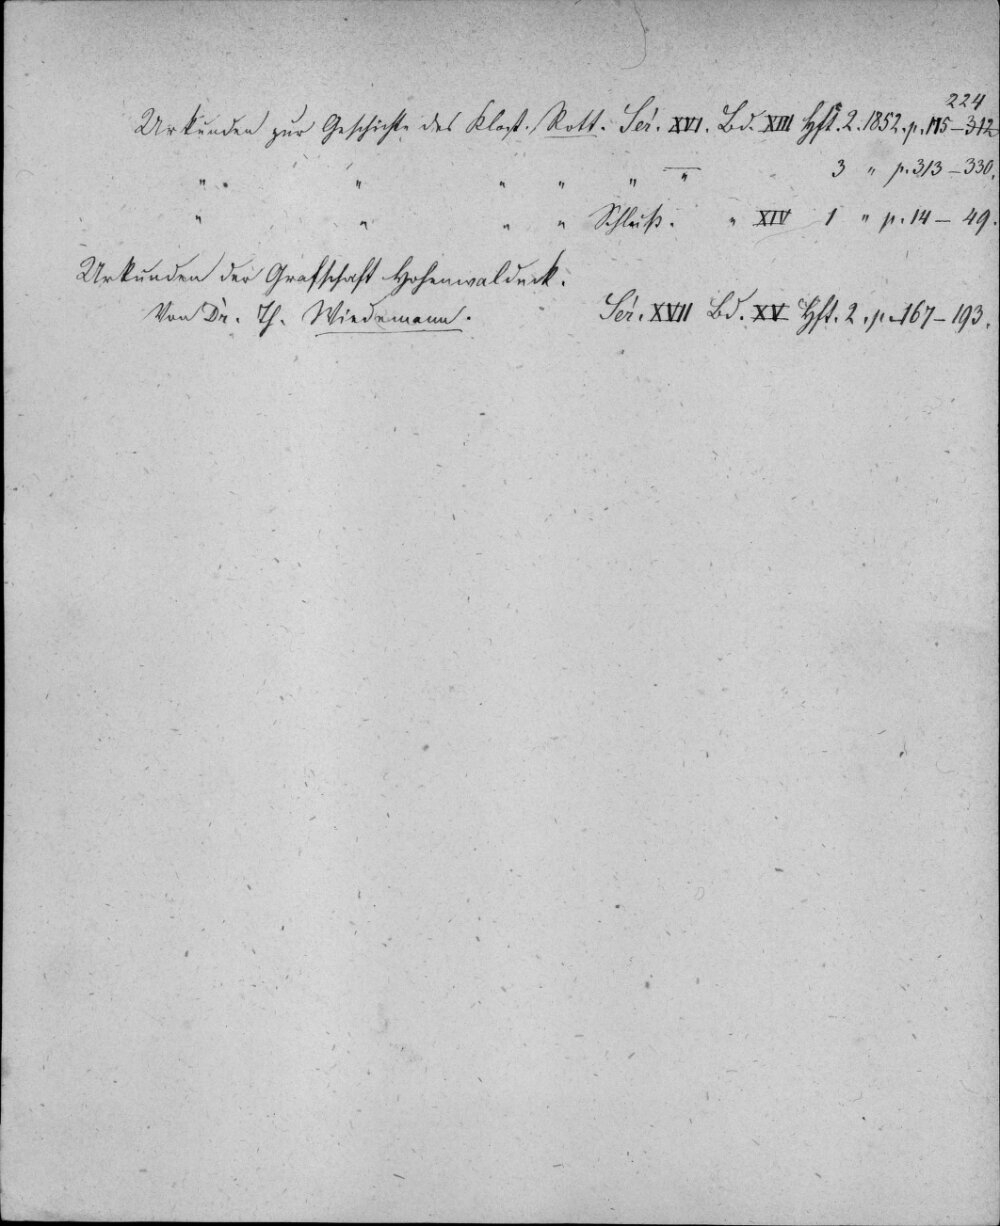 224
Urkunden zur Geschichte des Klost. Rott. Ser. XVI. Bd. XIII Hft. 2. 1852. p. 175-312
" " " " " " 3 " p. 313-330.
" " " " Schluß. " XIV 1 " p. 14-49.
Urkunden der Grafschaft Hohenwaldeck.
Von Dr. Th. Wiedemann. Ser. XVII Bd. XV Hft. 2. p. 167-193.